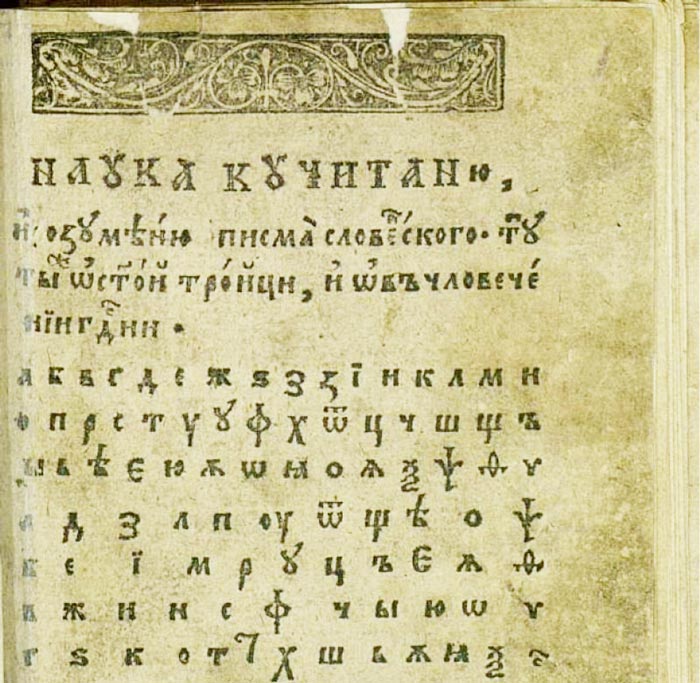 НАꙊКА КꙊЧИТАНЮ,
и҆ роꙁꙋмѣ́ню писма̀ словеⷩ҇ского· тꙋ
тыⷤ ѡ҆ст҃о́й тро́йци, и҆ ѡ҆въчловече́
нїи гдⷭ҇ни .
а б в г д е ж ѕ з ꙁ ї и к л м н
о п р с т у ꙋ ф х ѿ ц ч ш щ ъ
ы ь ѣ є ю ѫ ѡ ꙗ о ѧ ѯ ѱ ѳ ѵ
а д з л п оу ѿ щ ѣ о ѱ
б е ї м р ꙋ ц ъ є ѧ ѳ
в ж и н с ф ч ы ю ѡ ѵ
г ѕ к о т ҁ х ш ь ѫ ꙗ ѯ